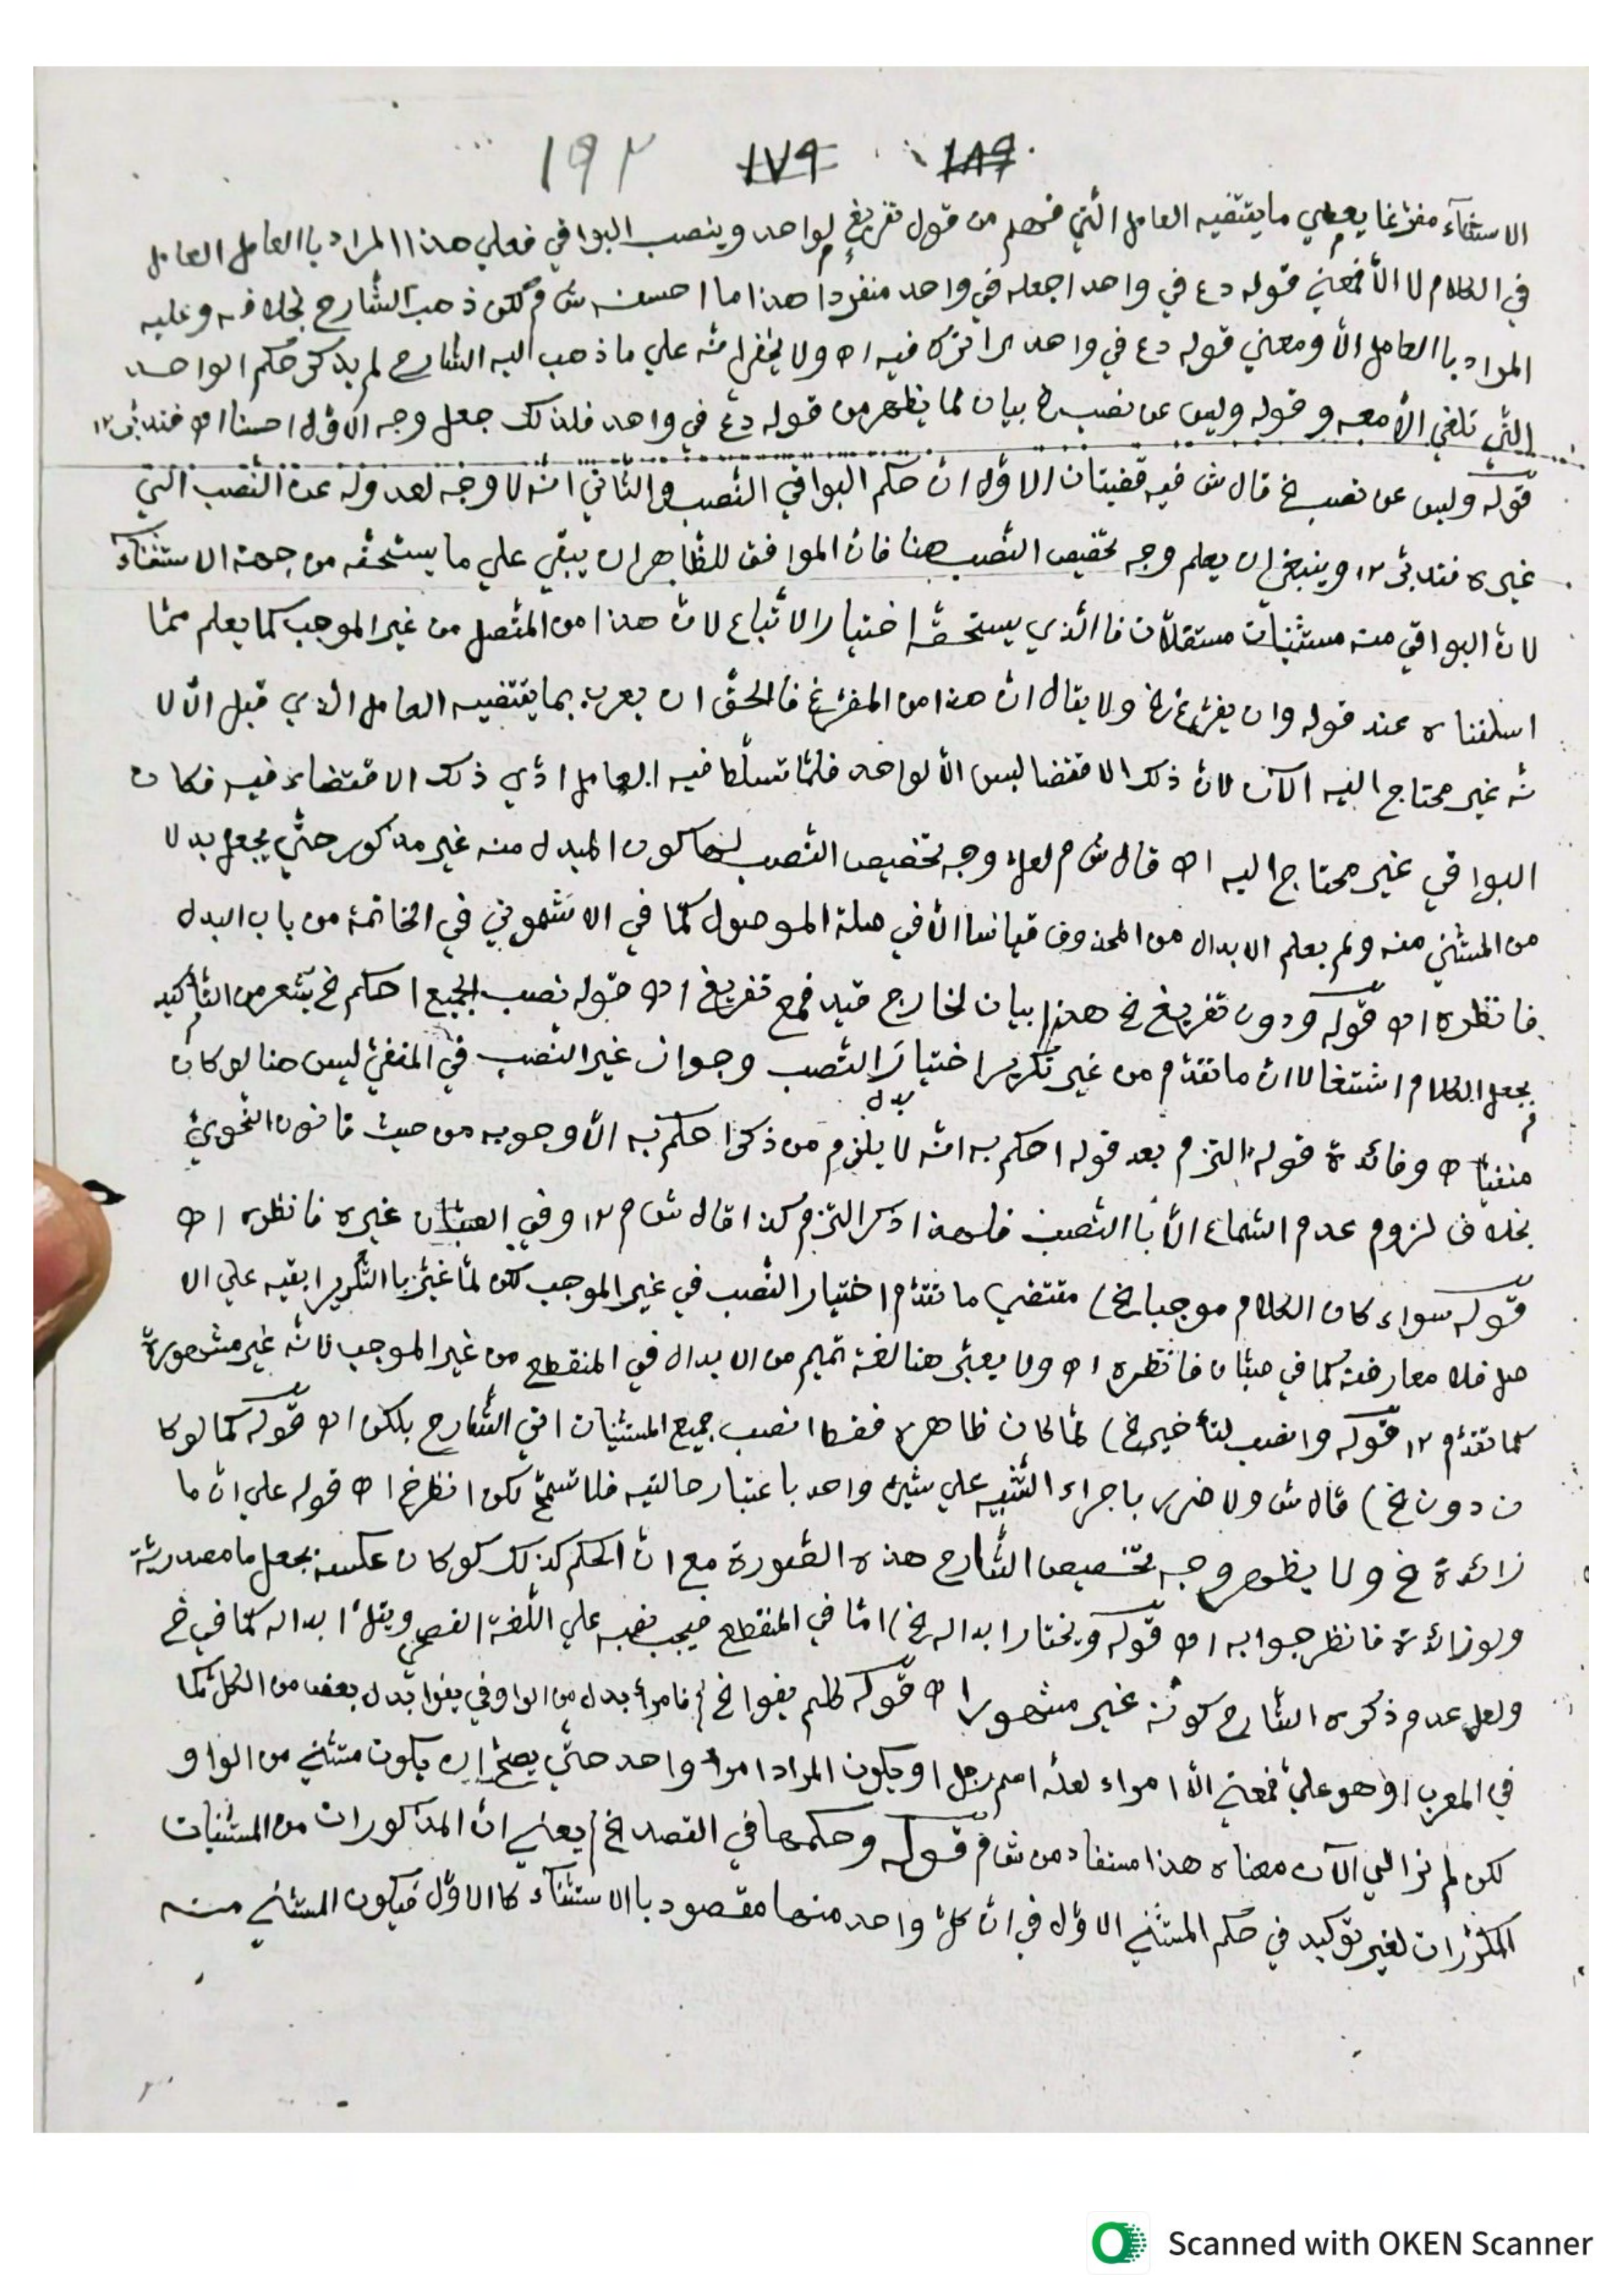 ١٩٢ ١٧٩ ١٨٩
الاستثناء مفرّغا يعطي ما يقتضيه العامل الّتي فهم من قول تفريغ لواحد وينصب البواقي فعلي هذا المراد باالعامل العامل
في الكلام لا الّا فمعني قوله دع في واحد اجعله في واحد منفردا هذا ما احسنه ش م لكن ذهب الشّارح بخلافه وعليه
المراد باالعامل الّا ومعني قوله دع في واحد اتركه فيه اه ولا يخفي انّه علي ما ذهب اليه الشّارح لم يذكر حكم الواحد
الّتي تلغي الّا معه وقوله وليس عن نصب خ بيان لما يظهر من قوله دع في واحد فلذلك جعل وجه الاوّل احسنا اه فتدبّر ١٢
قوله وليس عن نصب خ قال ش فيه قضيتان الاوّل انّ حكم البواقي النّصب والثّاني انّه لا وجه لعدوله عن النّصب الّتي
غيره فتدبّر ١٢ وينبغي ان يعلم وجه تخصيص النّصب هنا فانّ الموافق للظّاهر ان يبقي علي ما يستحقّه من جهة الاستثناء
لانّ البواقي منه مستثنيات مستقلّات فاالّذي يستحقّه اختيار الاتّباع لانّ هذا من المتّصل من غير الموجب كما يعلم ممّا
اسلفناه عند قوله وان يفرّغ خ ولا يقال انّ هذا من المفرّغ فالحقّ ان يعرب بما يقتضيه العامل الّذي قبل الّا لا
نّه غير محتاج اليه الآن لانّ ذلك الاقتضا ليس الّا لواحد فلمّا تسلّط فيه العامل ادّي ذلك الاقتضاء فيه فكان
البواقي غير محتاج اليه اه قال ش م لعلّ وجه تخصيص النّصب لها كون المبدل منه غير مذكور حتّي يجعل بدلا
من المستثني منه ولم يعلم الابدال من المحذوف قياسا الّا في صلة الموصول كما في الاشموني في الخاتمة من باب البدل
فانظره اه قوله ودون تفريغ خ هذا بيان لخارج قيد فمع تفريغ اه قوله نصب الجميع احكم خ يشعر من التّأكيد
بجعل الكلام اشتغالا انّ ما تقدّم من غير تكرير اختيار النّصب وجواز غير النّصب في المنفيّ ليس هنا لو كان
بدل
منفيّا اه وفائدة قوله التزم بعد قوله احكم به انّه لا يلزم من ذكر احكم به الّا وجوبه من حيث قانون النّحويّ
بخلاف لزوم عدم السّماع الّا باالنّصب فلهذا ذكر التزم كذا قال ش م ١٢ وفي الصبّان غيره فانظره اه
قوله سواء كان الكلام موجبا خ) مقتضي ما تقدّم اختيار النّصب في غير الموجب لكن لمّا غيّر باالتّكرير ابقيه علي الا
صل فلا معارضة كما في صبّان فانظره اه ولا يعتبر هنا لغة تميم من الابدال في المنقطع من غير الموجب لانّه غير مشهورة
كما تقدّم ١٢ قوله وانصب لتأخير خ) لمّا كان ظاهره فقط انصب جميع المستثنيات اتي الشّارح بلكن اه قوله كما لو كا
ن دون خ) قال ش ولا ضرر باجراء التّشبيه علي شيئ واحد باعتبار حالتيه فلا تسمّح لكن انظر خ اه قوله علي انّ ما
زائدة خ ولا يظهر وجه تخصيص الشّارح هذه الصّورة مع انّ الحكم كذلك لو كان عكسه بجعل ما مصدريّة
ولو زائدة فانظر جوابه اه قوله ويختار ابداله خ) امّا في المنقطع فيجب نصبه علي اللّغة الفصحي ويقلّ ابداله كما في خ
ولعل عدم ذكره الشّارح كونه غير مشهور اه قوله كلم يفوا خ) فامرأ بدل من الواو في يفوا بدل بعض من الكلّ كما
في المعرب اوهو عليّ فمعني الّا امراء لعلّه اسم رجل او يكون المراد امرأ واحد حتّي يصحّ ان يكون مستثني من الواو
لكن لم نزالي الآن معناه هذا مستفاد من ش م قوله وحكمها في القصد خ) يعني انّ المذكورات من المستثنيات
المكرّرات لغير توكيد في حكم المستثني الاوّل في انّ كلّ واحد منها مقصود باالاستثناء كاالاوّل فيكون المستثني منه
Scanned with OKEN Scanner